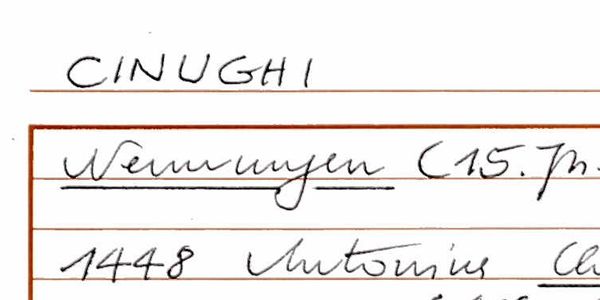 CINUGHI
Nennungen (15. Jh.
1448 Antonius